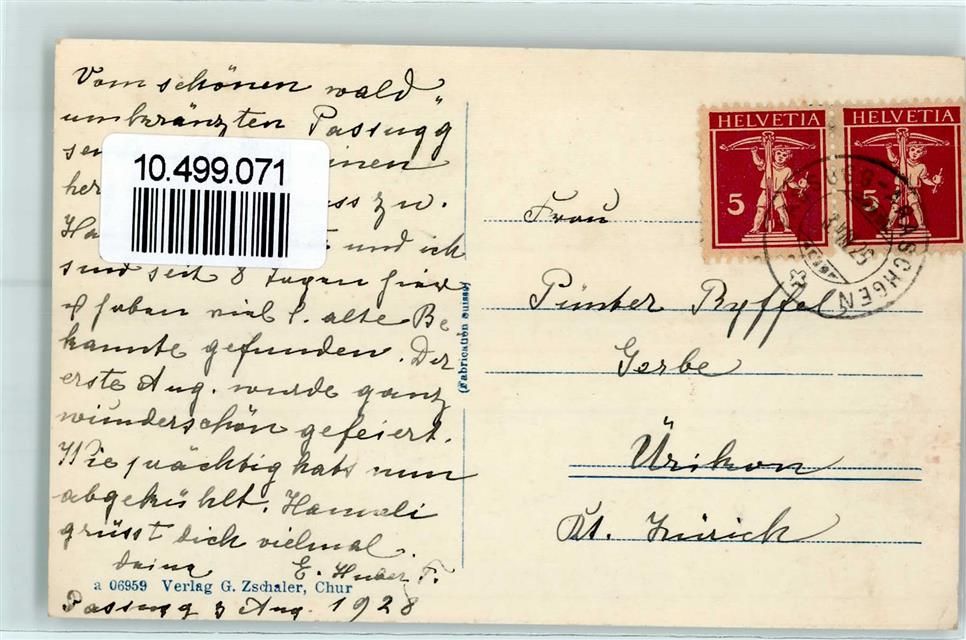 Vom schönen wald„
umkränzten Passugg
sen inen
her ss zu.
Ha und ich
sind seit 8 Tagen hier
& haben viel l. alte Be
kannte gefunden. Der
erste Aug. wurde ganz
wunderschön gefeiert.
Wie prächtig hats nun
abgekühlt. Hanneli
grüsst dich vielmal.
deine E. Huber F.
a 06959 Verlag G. Zschaler, Chur
Passugg 3 Aug. 1928
10.499.071
(Fabrication suisse)
HELVETIA HELVETIA
5 5
Frau
Pünter Ryffel
Gerbe
Ürikon
Kt. Zürich